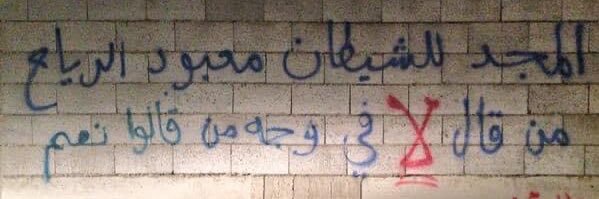 المجد للشيطان معبود الرياح
من قال لا في وجه من قالوا نعم